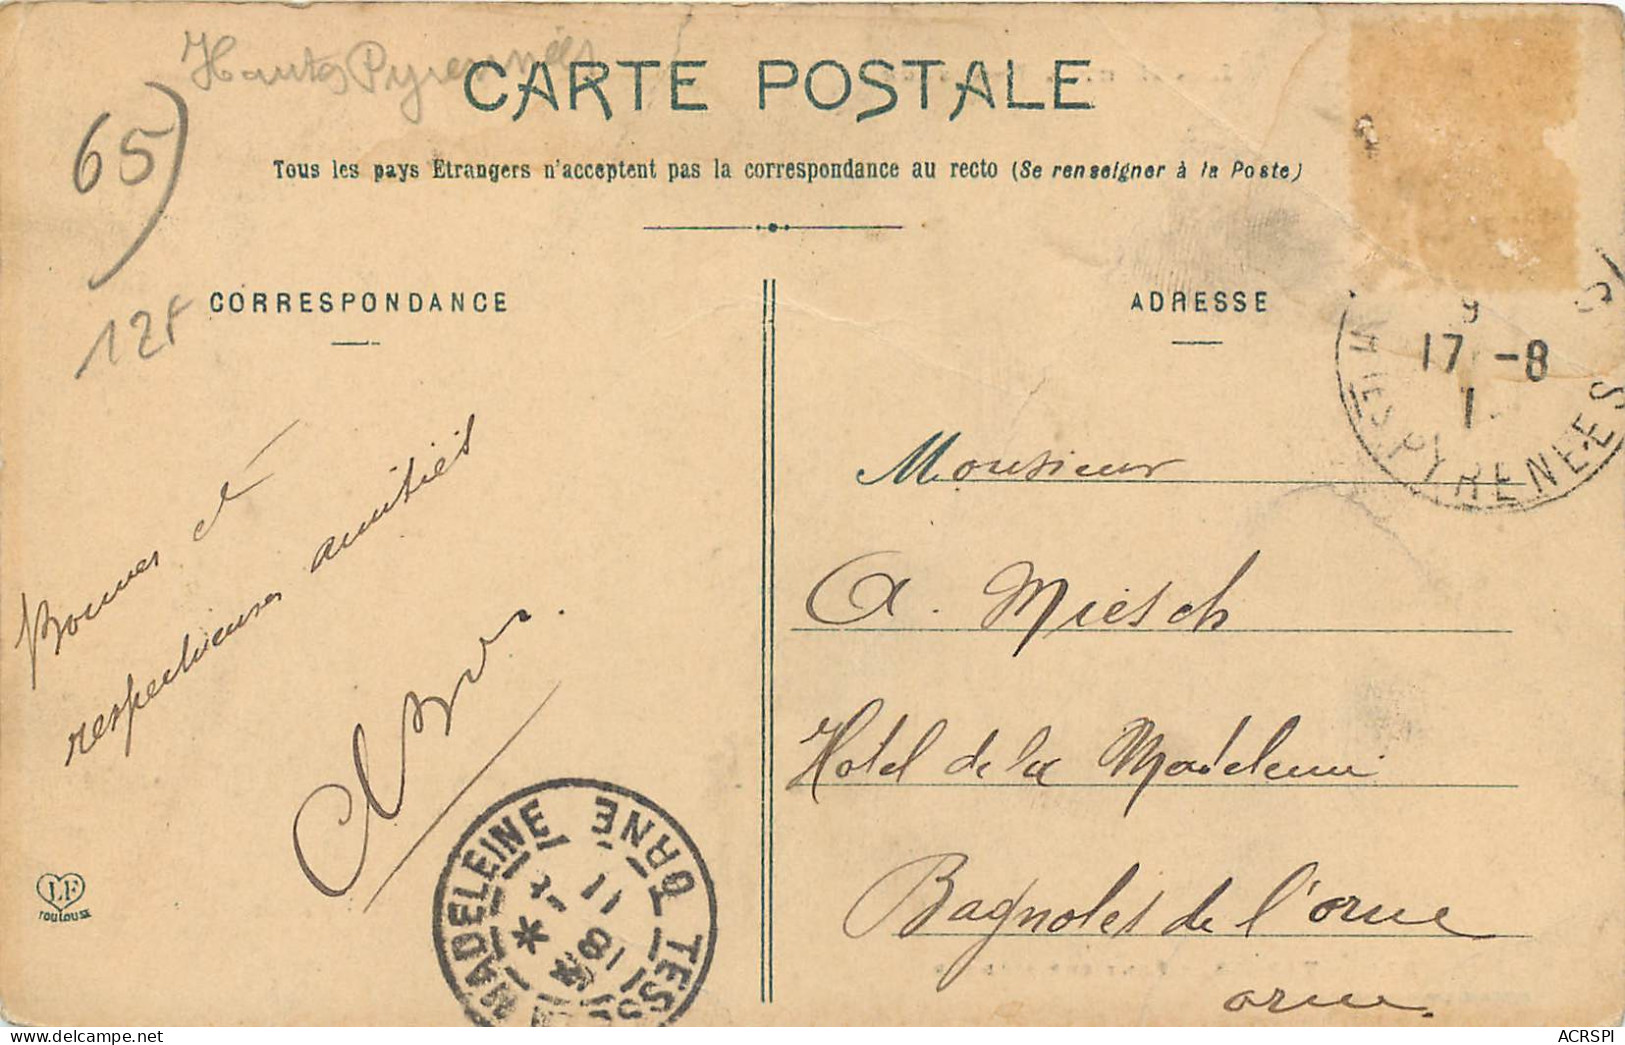 Hautes Pyrennées
CARTE POSTALE
65)
Tous les pays Etrangers n'acceptent pas la correspondance au recto (Se renseigner à la Poste)
12F
CORRESPONDANCE
ADRESSE
17 -8
PYRENEES
Bonnes et
respectueuses amitiés
Monsieur
A. Miesch
Hotel de la Madeleine
Bagnoles de l'orne
orne
MADELEINE ORNE
18
11
LF
TOULOUSE
ACRSPI